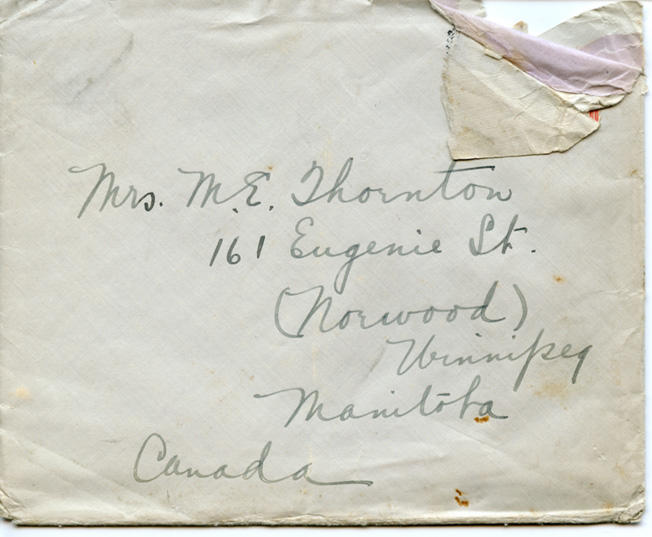 Mrs. M.E. Thornton
161 Eugenie St.
(Norwood)
Winnipeg
Manitoba
Canada